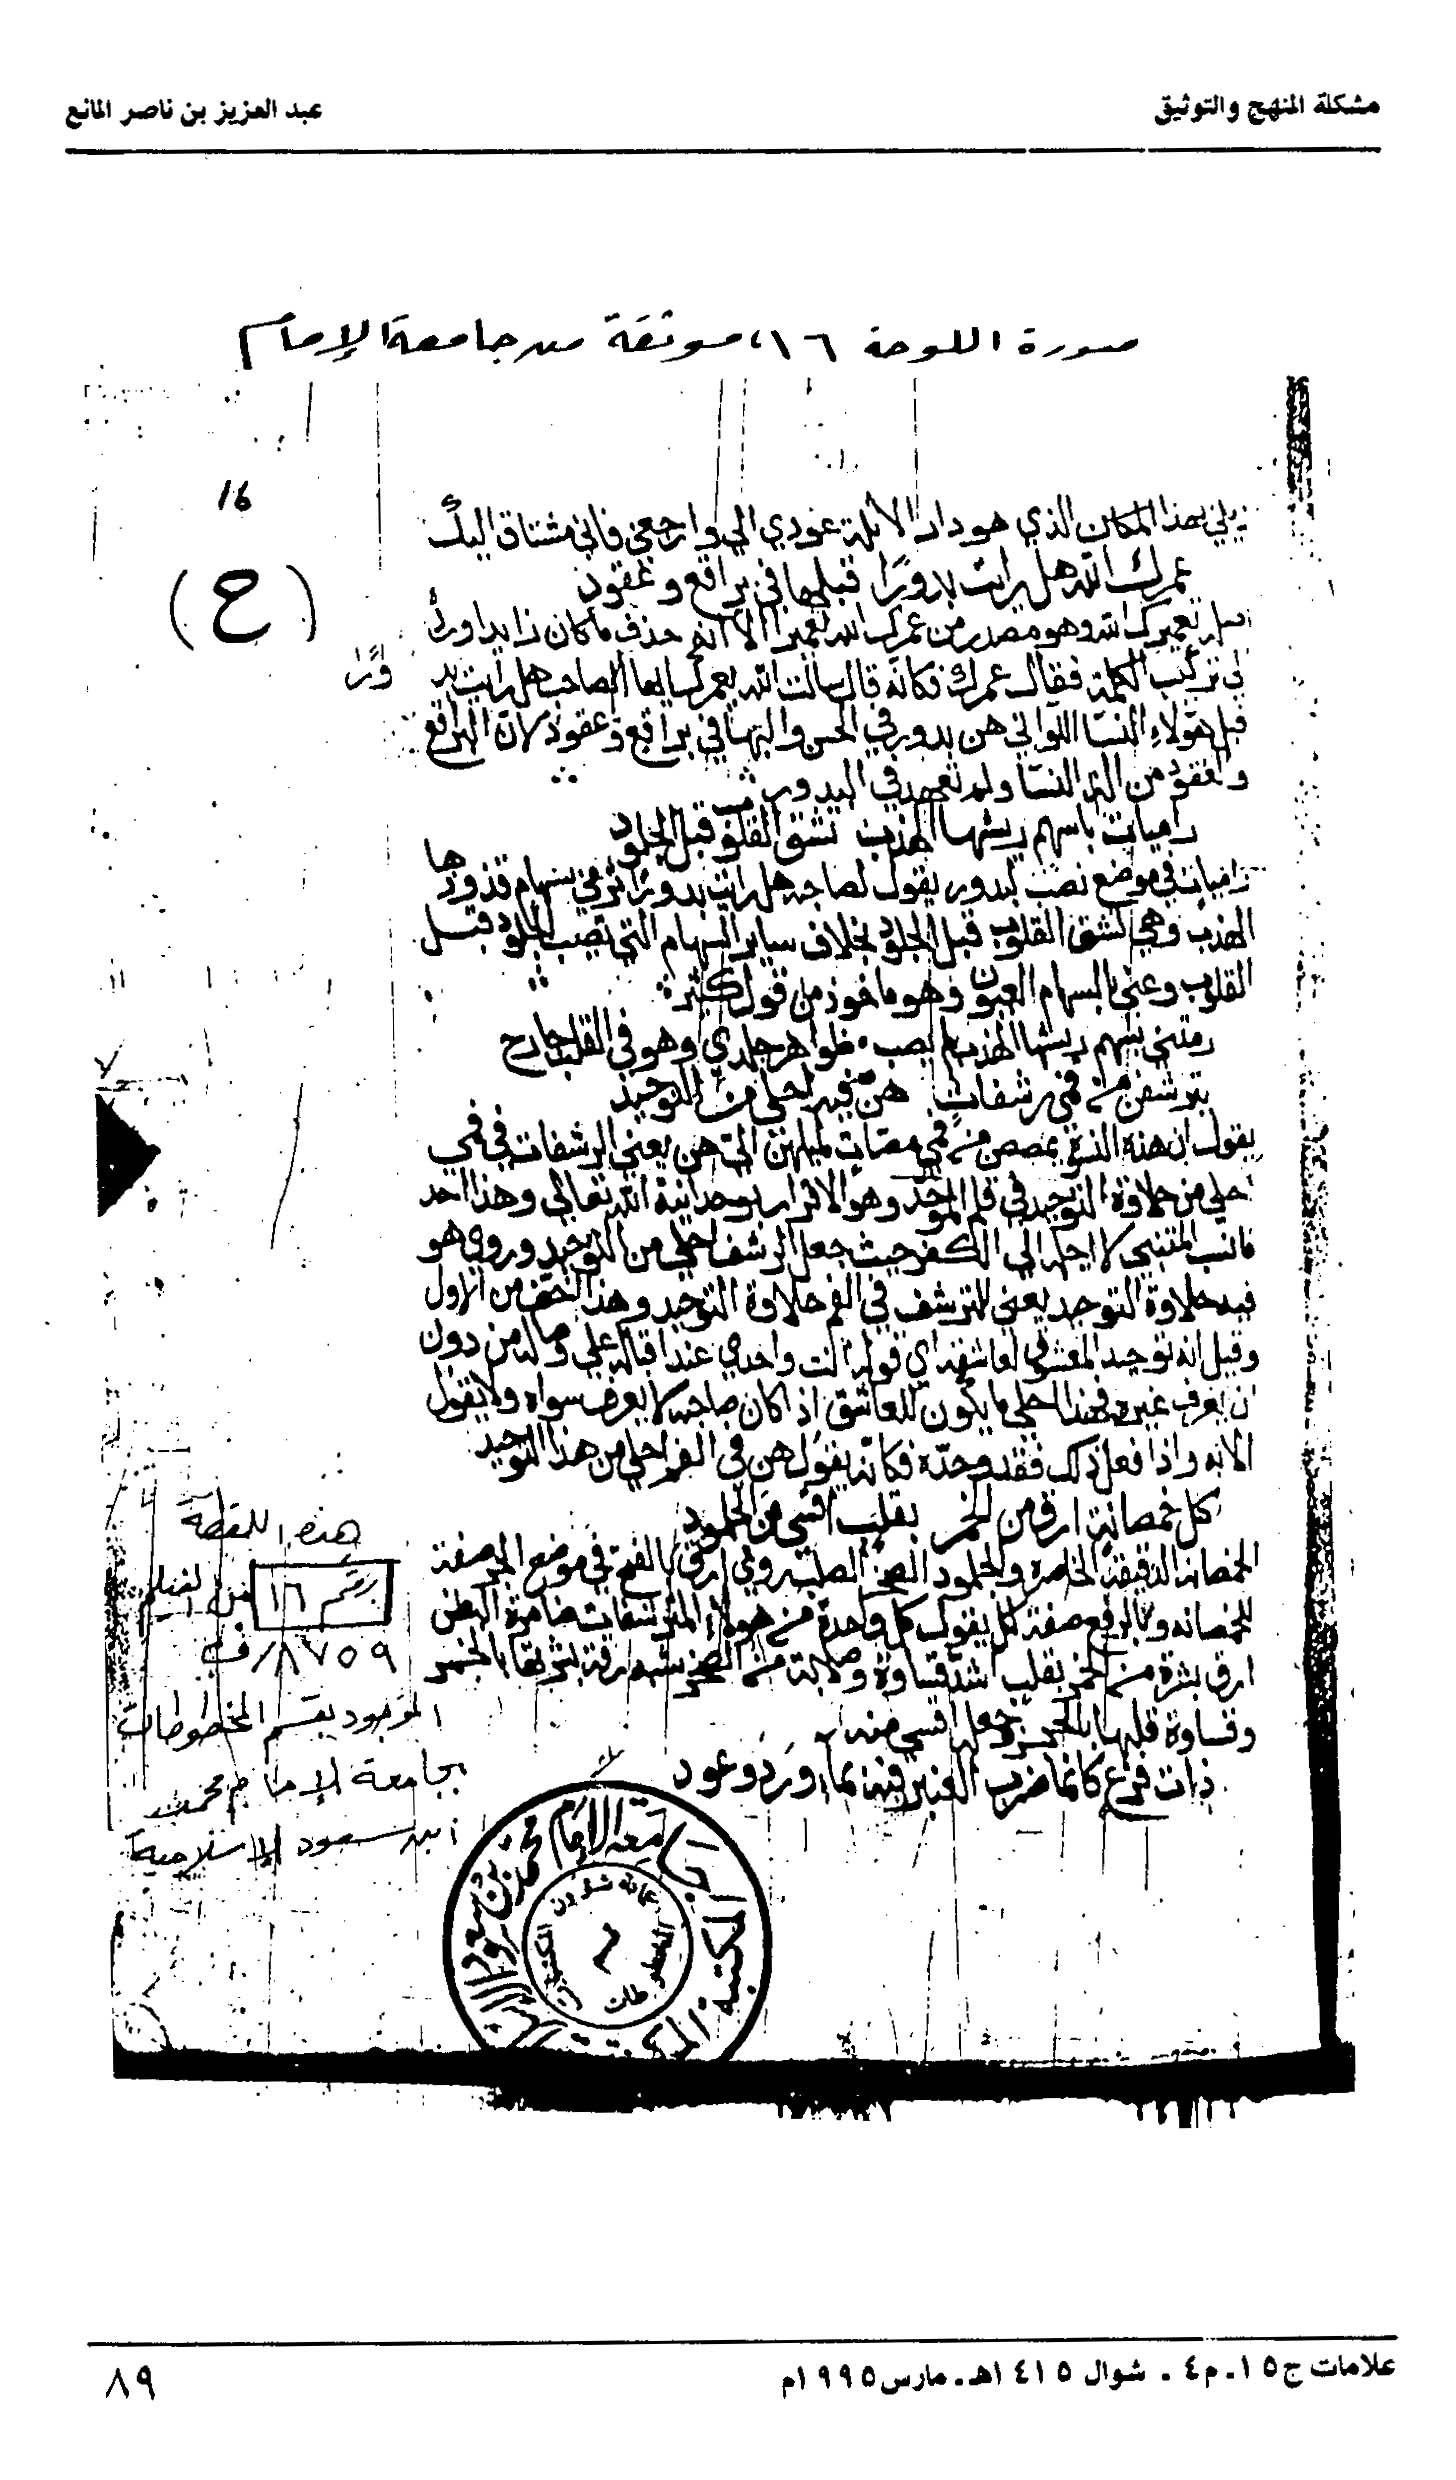 مشكلة المنهج والتوثيق
عبد العزيز بن ناصر المانع
صورة اللوحة ١٦، موثقة من جامعة الإمام
16
(ح)
بهذا المكان الذي هو دار الأثلة عودي الي وارجعي فاني مشتاق اليك
عمرك الله هل رايت بدورًا قبلها في براقع وعقود
تعميرك الله وهو مصدر من عمرك الله تعميرا الا انه حذف ما كان زايدا ورد
تركيب الكلمة فقال عمرك فكانه قال سالت الله يعمرك ايها الصاحب هل رايت بدورًا
قبل هولاء النسا اللواتي هن بدور في الحسن والبها في براقع وعقود لان البراقع
والعقود من النسا ولم تعهد في البدور
راميات باسهم ريشها الهدب تشق القلوب قبل الجلود
راميات في موضع نصب لبدور يقول لصاحبه هل رايت بدورًا ترمي بسهام قذذوها
الهدب وهي تشق القلوب قبل الجلود بخلاف ساير السهام التي تصيب الجلود قبل
القلوب وعنى بالسهام العيون وهو ماخوذ من قول كثير
رمتني بسهم ريشه الهدب لم يصب ظواهر جلدي وهو في القلب جارح
يترشفن من فمي رشفات هن فيه احلى من التوحيد
يقول ان هذه النسوة يمصصن من فمي مصات لميلهن الي هن يعني الرشفات في فمي
احلى من حلاوة التوحيد في فم الموحد وهو الاقرار بوحدانية الله تعالى وهذا احد
ما نسب المتنبي لاجله الي الكفر حيث جعل الرشف احلى من التوحيد وروي هو
فيه حلاوة التوحيد يعني للترشف في الفم حلاوة التوحيد وهذا اخف من الاول
وقيل انه توحيد المعشوق لعاشقه اي قوله انت واحدي عند اقباله علي وصاله من دون
ان يعرف غيره فهذا احلى ما يكون للعاشق اذا كان صاحبه لا يعرف سواه ولا يقول
الا به واذا فعل ذلك فقد وحده فكانه يقول هن في الفم احلى من هذا التوحيد
كل خمصانة ارق من الخمر بقلب اقسى من الجلمود
الخمصانة الدقيقة الخاصرة والجلمود الصخر الصلب وروي ارق بالفتح في موضع الجر صفة
للخمصانة وبالرفع صفة لكل يقول كل واحدة من هولاء المترشفات ضامرة البطن
ارق بشرة من الخمر بقلب اشد قساوة وصلابة من الصخر شبه رقة بشرتها بالخمر
وقساوة قلبها بالحجر وجعله اقسى منه
ذات فرع كانما ضرب العنبر فيه بماء ورد وعود
هذه اللقطة
رقم ١٦ من الفيلم
٨٧٥٩/ف
الموجود بقسم المخطوطات
بجامعة الإمام محمد
ابن سعود الإسلامية
جامعة الإمام محمد بن سعود الاسلامية
المكتبة المركزية
عمادة شئون المكتبات
المخطوطات
علامات ج١٥. م٤ . شوال ١٤١٥هـ. مارس ١٩٩٥م
٨٩